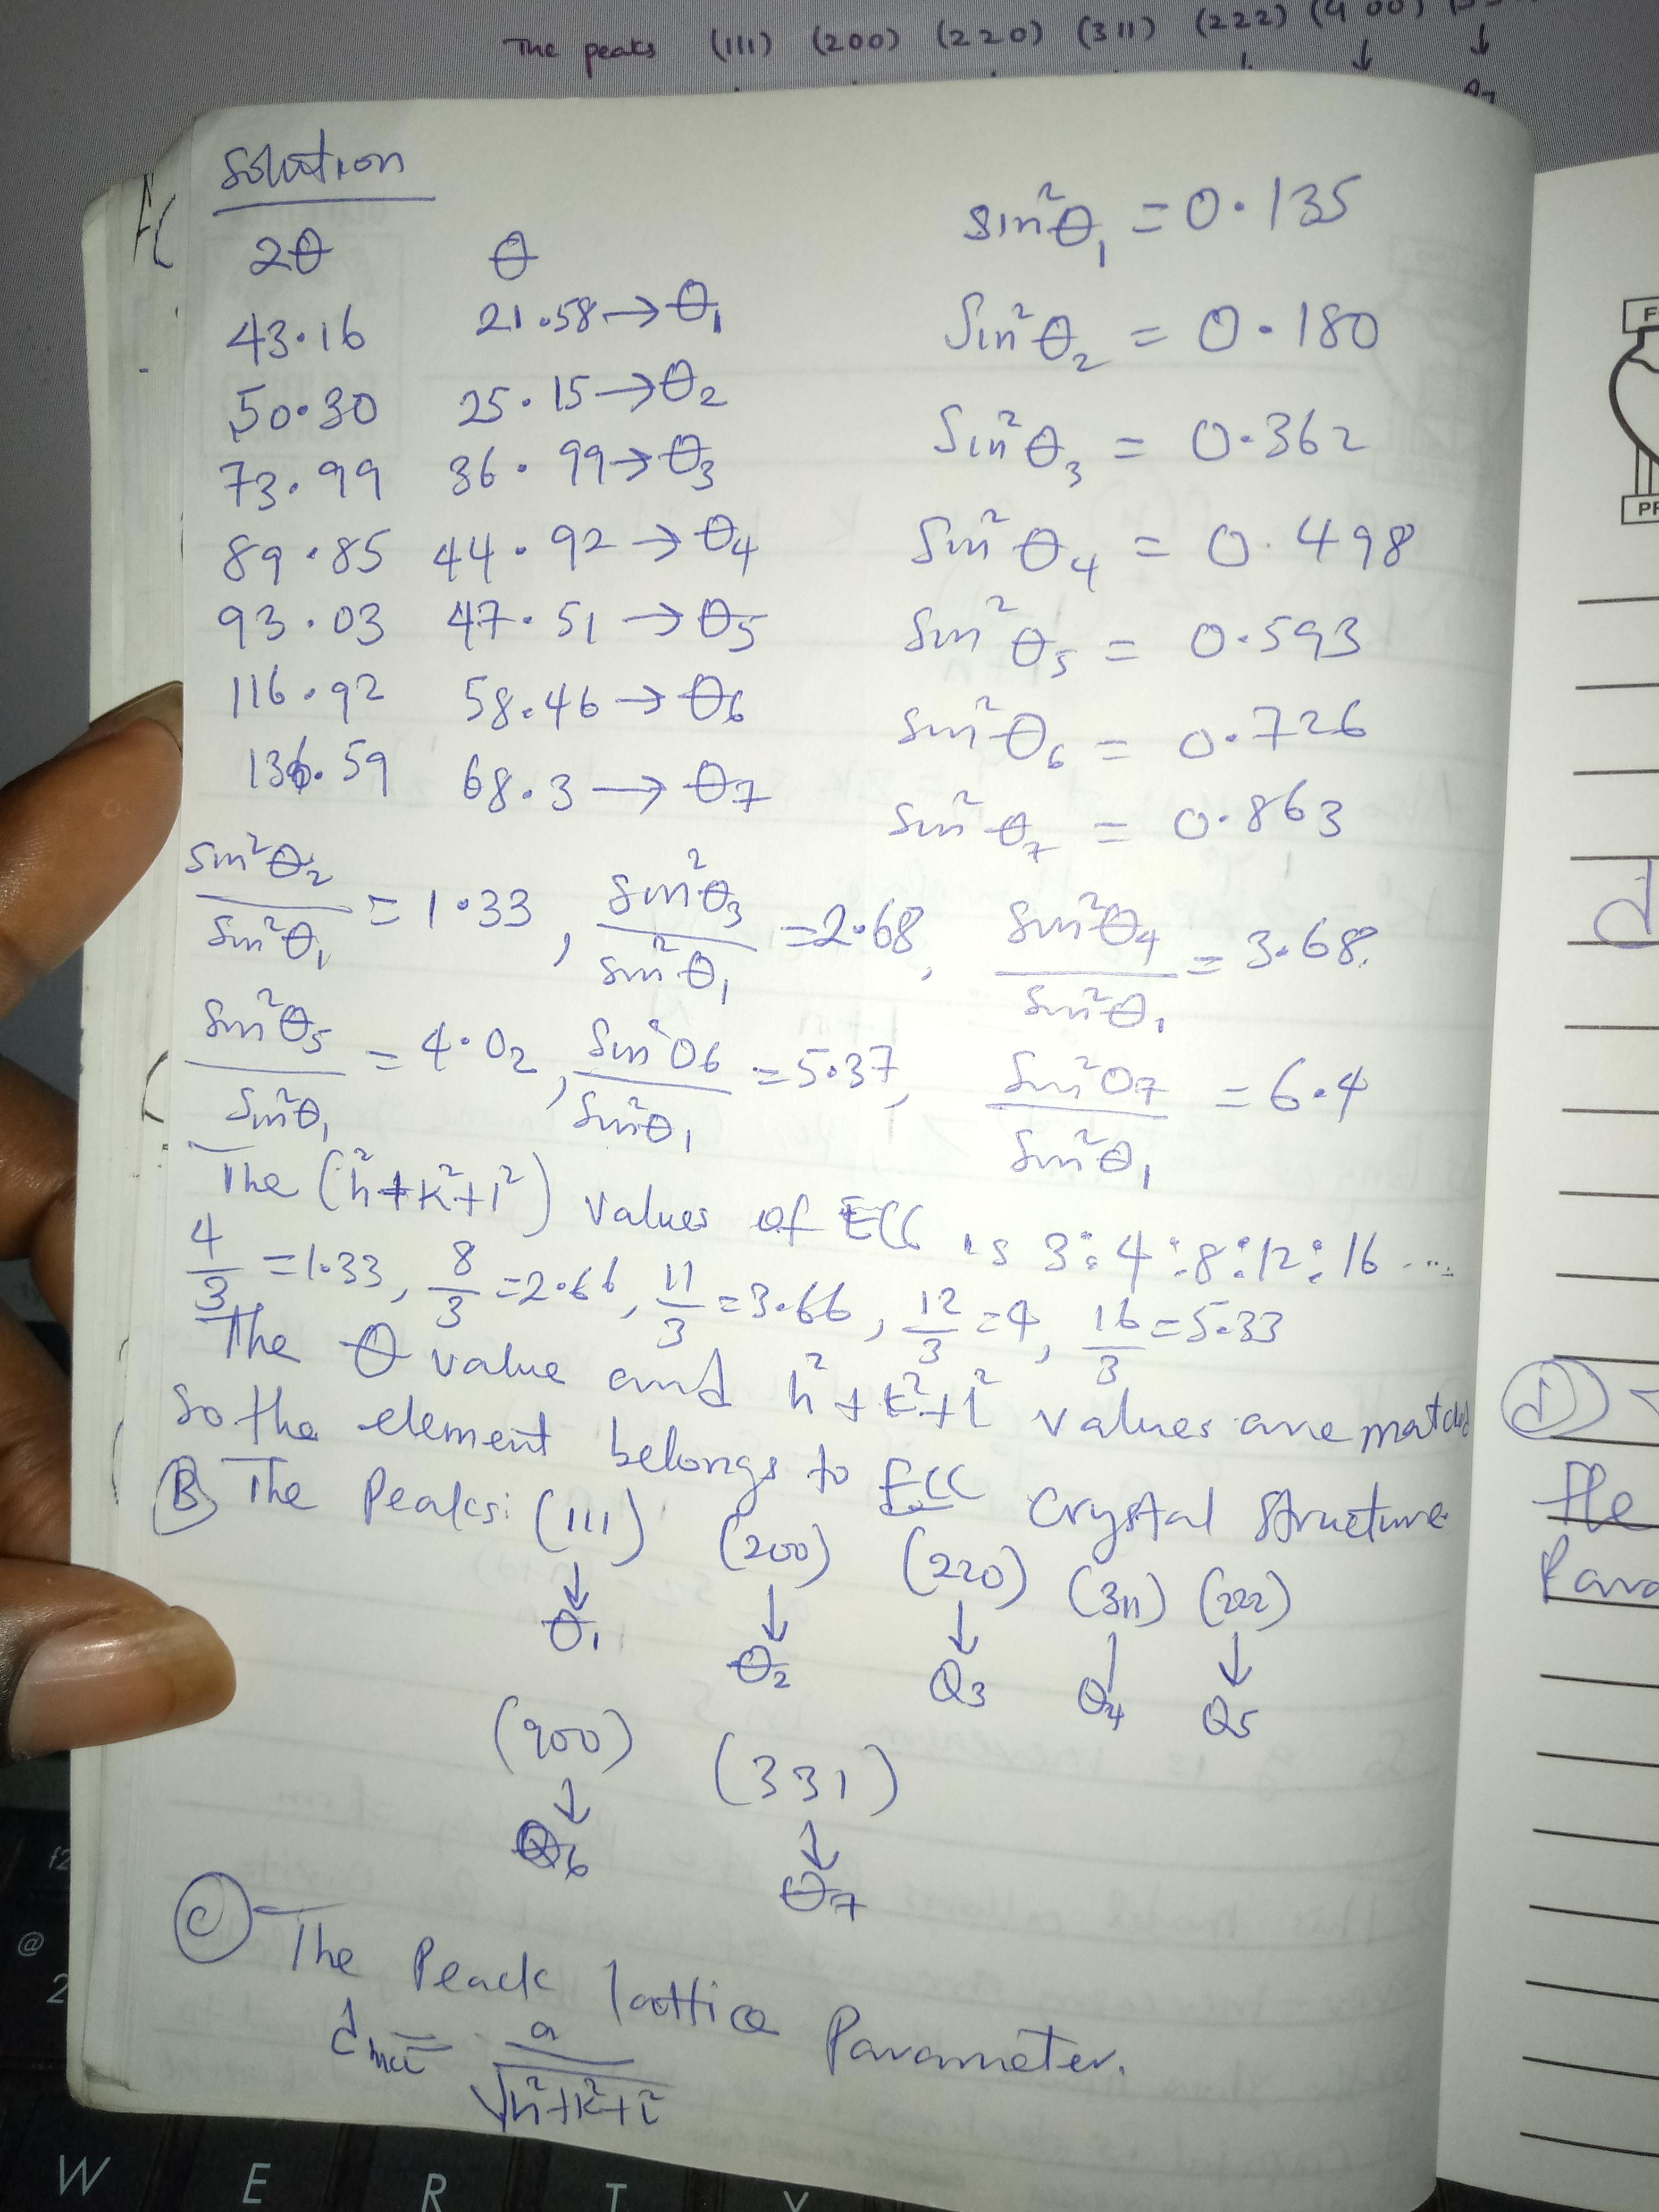 The peaks (111) (200) (220) (311) (222) (400)
Solution
A(
2θ θ
43.16 21.58 → θ₁
50.30 25.15 → θ₂
73.99 36.99 → θ₃
89.85 44.92 → θ₄
93.03 47.51 → θ₅
116.92 58.46 → θ₆
136.59 68.3 → θ₇
Sin²θ₁ = 0.135
Sin²θ₂ = 0.180
Sin²θ₃ = 0.362
Sin²θ₄ = 0.498
Sin²θ₅ = 0.593
Sin²θ₆ = 0.726
Sin²θ₇ = 0.863
Sin²θ₂/Sin²θ₁ = 1.33, Sin²θ₃/Sin²θ₁ = 2.68, Sin²θ₄/Sin²θ₁ = 3.68.
Sin²θ₅/Sin²θ₁ = 4.02, Sin²θ6/Sin²θ₁ = 5.37, Sin²θ7/Sin²θ₁ = 6.4
The (h²+k²+l²) values of FCC is 3:4:8:12:16 ...
4/3 = 1.33, 8/3 = 2.66, 11/3 = 3.66, 12/3 = 4, 16/3 = 5.33
The θ value and h²+k²+l² values are matched
So the element belongs to FCC Crystal Structure.
B The Peaks: (111) (200) (220) (311) (222)
↓ ↓ ↓ ↓
θ₁ θ₂ θ₃ θ₄ θ₅
(400) (331)
↓ ↓
θ₆ θ₇
C The Peack lattice Parameter.
d hkl = a/√h²+k²+l²
d
The
Para
PR
f2
@
2
W E R T Y